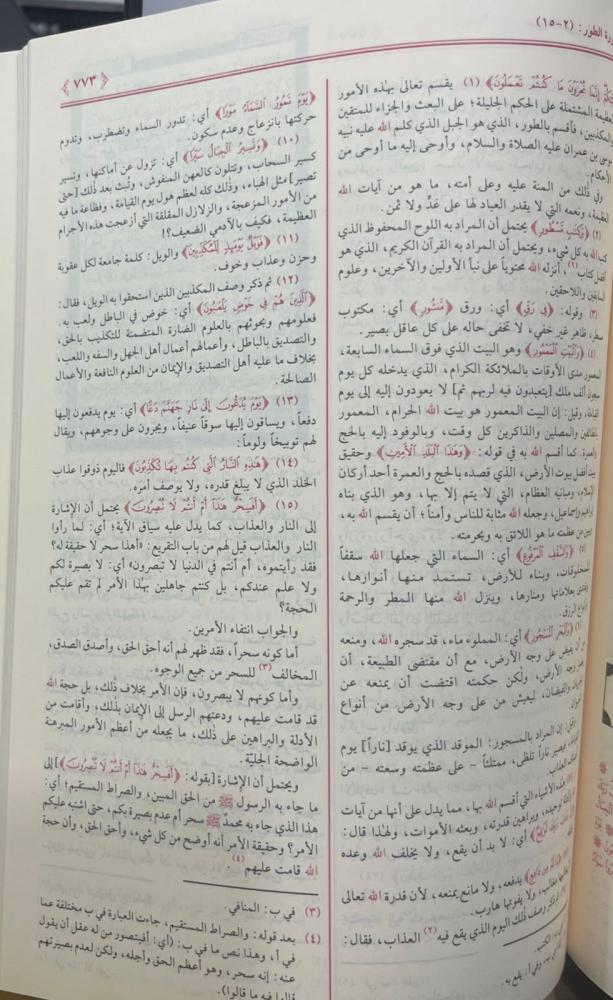 سورة الطور: (٢-١٥)
﴿٧٧٣﴾
إِنَّمَا تُجْزَوْنَ مَا كُنتُمْ تَعْمَلُونَ﴾ (١) يقسم تعالى بهذه الأمور
العظيمة المشتملة على الحكم الجليلة؛ على البعث والجزاء للمتقين
والمكذبين، فأقسم بالطور، الذي هو الجبل الذي كلم الله عليه نبيه
موسى بن عمران عليه الصلاة والسلام، وأوحى إليه ما أوحى من
الأحكام.
وفي ذلك من المنة عليه وعلى أمته، ما هو من آيات الله
العظيمة، ونعمه التي لا يقدر العباد لها على عَدٍّ ولا ثمن.
(٢) ﴿وَكِتَابٍ مَسْطُورٍ﴾ يحتمل أن المراد به اللوح المحفوظ الذي
كتب الله به كل شيء، ويحتمل أن المراد به القرآن الكريم، الذي هو
أفضل كتاب(١)، أنزله الله محتوياً على نبأ الأولين والآخرين، وعلوم
السابقين واللاحقين.
(٣) وقوله: ﴿فِي رَقٍّ﴾ أي: ورق ﴿مَنْشُورٍ﴾ أي: مكتوب
مسطر، ظاهر غير خفي، لا تخفى حاله على كل عاقل بصير.
(٤) ﴿وَالْبَيْتِ الْمَعْمُورِ﴾ وهو البيت الذي فوق السماء السابعة،
المعمور مدى الأوقات بالملائكة الكرام، الذي يدخله كل يوم
سبعون ألف ملك [يتعبدون فيه لربهم ثم] لا يعودون إليه إلى يوم
القيامة، وقيل: إن البيت المعمور هو بيت الله الحرام، المعمور
بالطائفين والمصلين والذاكرين كل وقت، وبالوفود إليه بالحج
والعمرة. كما أقسم الله به في قوله: ﴿وَهَذَا الْبَلَدِ الْأَمِينِ﴾ وحقيق
ببيت أفضل بيوت الأرض، الذي قصده بالحج والعمرة أحد أركان
الإسلام، ومبانيه العظام، التي لا يتم إلا بها، وهو الذي بناه
إبراهيم وإسماعيل، وجعله الله مثابة للناس وأمناً؛ أن يقسم الله به،
ويبين من عظمته ما هو اللائق به وبحرمته.
(٥) ﴿وَالسَّقْفِ الْمَرْفُوعِ﴾ أي: السماء التي جعلها الله سقفاً
للمخلوقات، وبناء للأرض، تستمد منها أنوارها،
ويقتدى بعلاماتها ومنارها، وينزل الله منها المطر والرحمة
وأنواع الرزق.
(٦) ﴿وَالْبَحْرِ الْمَسْجُورِ﴾ أي: المملوء ماء، قد سجره الله، ومنعه
من أن يفيض على وجه الأرض، مع أن مقتضى الطبيعة، أن
يغمر وجه الأرض، ولكن حكمته اقتضت أن يمنعه عن
الجريان والفيضان، ليعيش من على وجه الأرض من أنواع
الحيوان.
وقيل: إن المراد بالمسجور: الموقد الذي يوقد [ناراً] يوم
القيامة، فيصير ناراً تلظى، ممتلئاً - على عظمته وسعته - من
أصناف العذاب.
(٧) هذه الأشياء التي أقسم الله بها، مما يدل على أنها من آيات
الله وأدلة توحيده، وبراهين قدرته، وبعثه الأموات، ولهذا قال:
أي: لا بد أن يقع، ولا يخلف الله وعده
يدفعه، ولا مانع يمنعه، لأن قدرة الله تعالى
لا يغالبها مغالب، ولا يفوتها هارب.
ثم ذكر وصف ذلك اليوم الذي يقع فيه(٢) العذاب، فقال:
في ب: الكتب.
وفي أ: يقع به.
﴿يَوْمَ تَمُورُ السَّمَاءُ مَوْرًا﴾ أي: تدور السماء وتضطرب، وتدوم
حركتها بانزعاج وعدم سكون.
(١٠) ﴿وَتَسِيرُ الْجِبَالُ سَيْرًا﴾ أي: تزول عن أماكنها، وتسير
كسير السحاب، وتتلون كالعهن المنفوش، وتبث بعد ذلك [حتى
تصير] مثل الهباء، وذلك كله لعظم هول يوم القيامة، وفظاعة ما فيه
من الأمور المزعجة، والزلازل المقلقة التي أزعجت هذه الأجرام
العظيمة، فكيف بالآدمي الضعيف؟!
(١١) ﴿فَوَيْلٌ يَوْمَئِذٍ لِلْمُكَذِّبِينَ﴾ والويل: كلمة جامعة لكل عقوبة
وحزن وعذاب وخوف.
(١٢) ثم ذكر وصف المكذبين الذين استحقوا به الويل، فقال:
﴿الَّذِينَ هُمْ فِي خَوْضٍ يَلْعَبُونَ﴾ أي: خوض في الباطل ولعب به.
فعلومهم وبحوثهم بالعلوم الضارة المتضمنة للتكذيب بالحق،
والتصديق بالباطل، وأعمالهم أعمال أهل الجهل والسفه واللعب،
بخلاف ما عليه أهل التصديق والإيمان من العلوم النافعة والأعمال
الصالحة.
(١٣) ﴿يَوْمَ يُدَعُّونَ إِلَى نَارِ جَهَنَّمَ دَعًّا﴾ أي: يوم يدفعون إليها
دفعاً، ويساقون إليها سوقاً عنيفاً، ويجرون على وجوههم، ويقال
لهم توبيخاً ولوماً:
(١٤) ﴿هَذِهِ النَّارُ الَّتِي كُنْتُمْ بِهَا تُكَذِّبُونَ﴾ فاليوم ذوقوا عذاب
الخلد الذي لا يبلغ قدره، ولا يوصف أمره.
(١٥) ﴿أَفَسِحْرٌ هَذَا أَمْ أَنْتُمْ لَا تُبْصِرُونَ﴾ يحتمل أن الإشارة
إلى النار والعذاب، كما يدل عليه سياق الآية؛ أي: لما رأوا
النار والعذاب قيل لهم من باب التقريع: «أهذا سحر لا حقيقة له؟
فقد رأيتموه، أم أنتم في الدنيا لا تبصرون» أي: لا بصيرة لكم
ولا علم عندكم، بل كنتم جاهلين بهذا الأمر لم تقم عليكم
الحجة؟
والجواب انتفاء الأمرين.
أما كونه سحراً، فقد ظهر لهم أنه أحق الحق، وأصدق الصدق،
المخالف(٣) للسحر من جميع الوجوه.
وأما كونهم لا يبصرون، فإن الأمر بخلاف ذلك، بل حجة الله
قد قامت عليهم، ودعتهم الرسل إلى الإيمان بذلك، وأقامت من
الأدلة والبراهين على ذلك، ما يجعله من أعظم الأمور المبرهنة
الواضحة الجليّة.
ويحتمل أن الإشارة [بقوله: ﴿أَفَسِحْرٌ هَذَا أَمْ أَنْتُمْ لَا تُبْصِرُونَ﴾] إلى
ما جاء به الرسول ﷺ من الحق المبين، والصراط المستقيم؛ أي:
هذا الذي جاء به محمدٌ ﷺ سحر أم عدم بصيرة بكم، حتى اشتبه عليكم
الأمر؟ وحقيقة الأمر أنه أوضح من كل شيء، وأحق الحق، وأن حجة
الله قامت عليهم(٤).
(٣) في ب: المنافي.
(٤) بعد قوله: والصراط المستقيم، جاءت العبارة في ب مختلفة عما
في أ، وهذا نص ما في ب: (أي: أفيتصور من له عقل أن يقول
عنه: إنه سحر، وهو أعظم الحق وأجله، ولكن لعدم بصيرتهم
قالوا فيه ما قالوا).